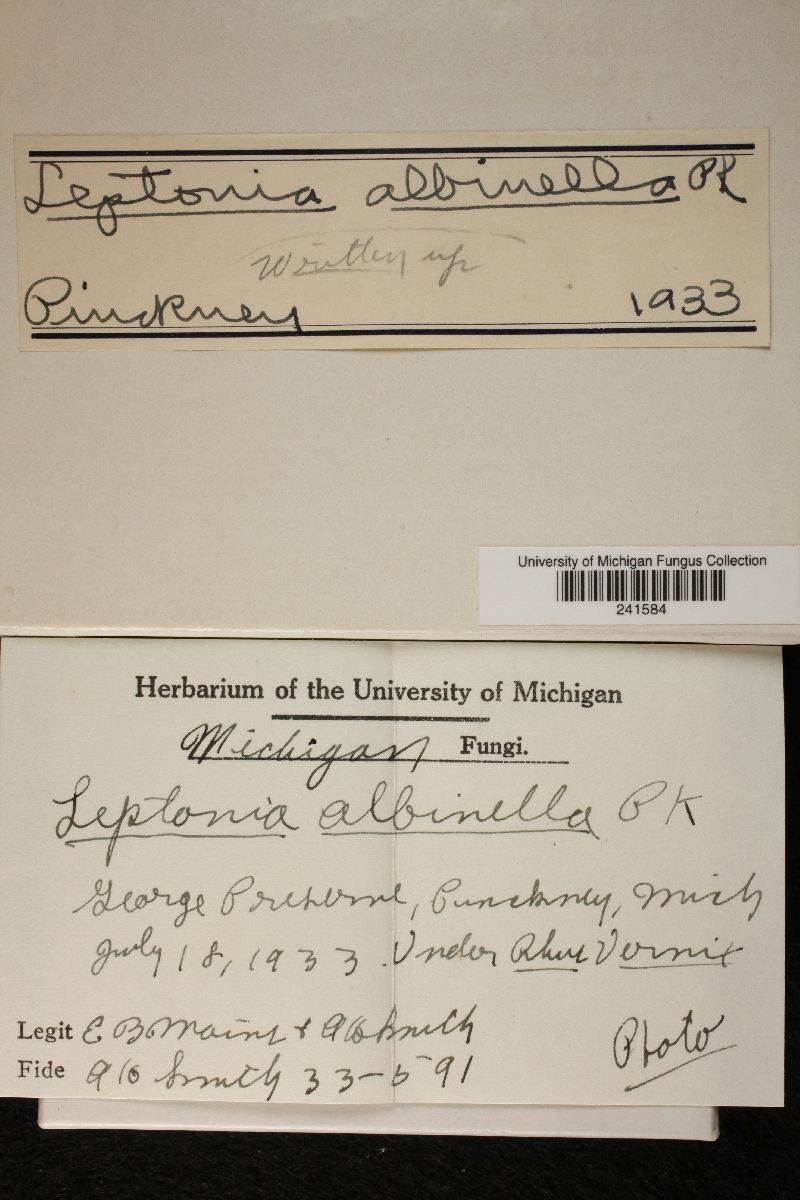 Leptonia albinella Pk
Written up
Pinckney 1933
University of Michigan Fungus Collection
241584
Herbarium of the University of Michigan
Michigan Fungi.
Leptonia albinella Pk
George Preserve, Pinckney, Mich
July 18, 1933. Under Rhus Vernix
Legit E B Mains & AH Smith
Photo
Fide AH Smith 33-591